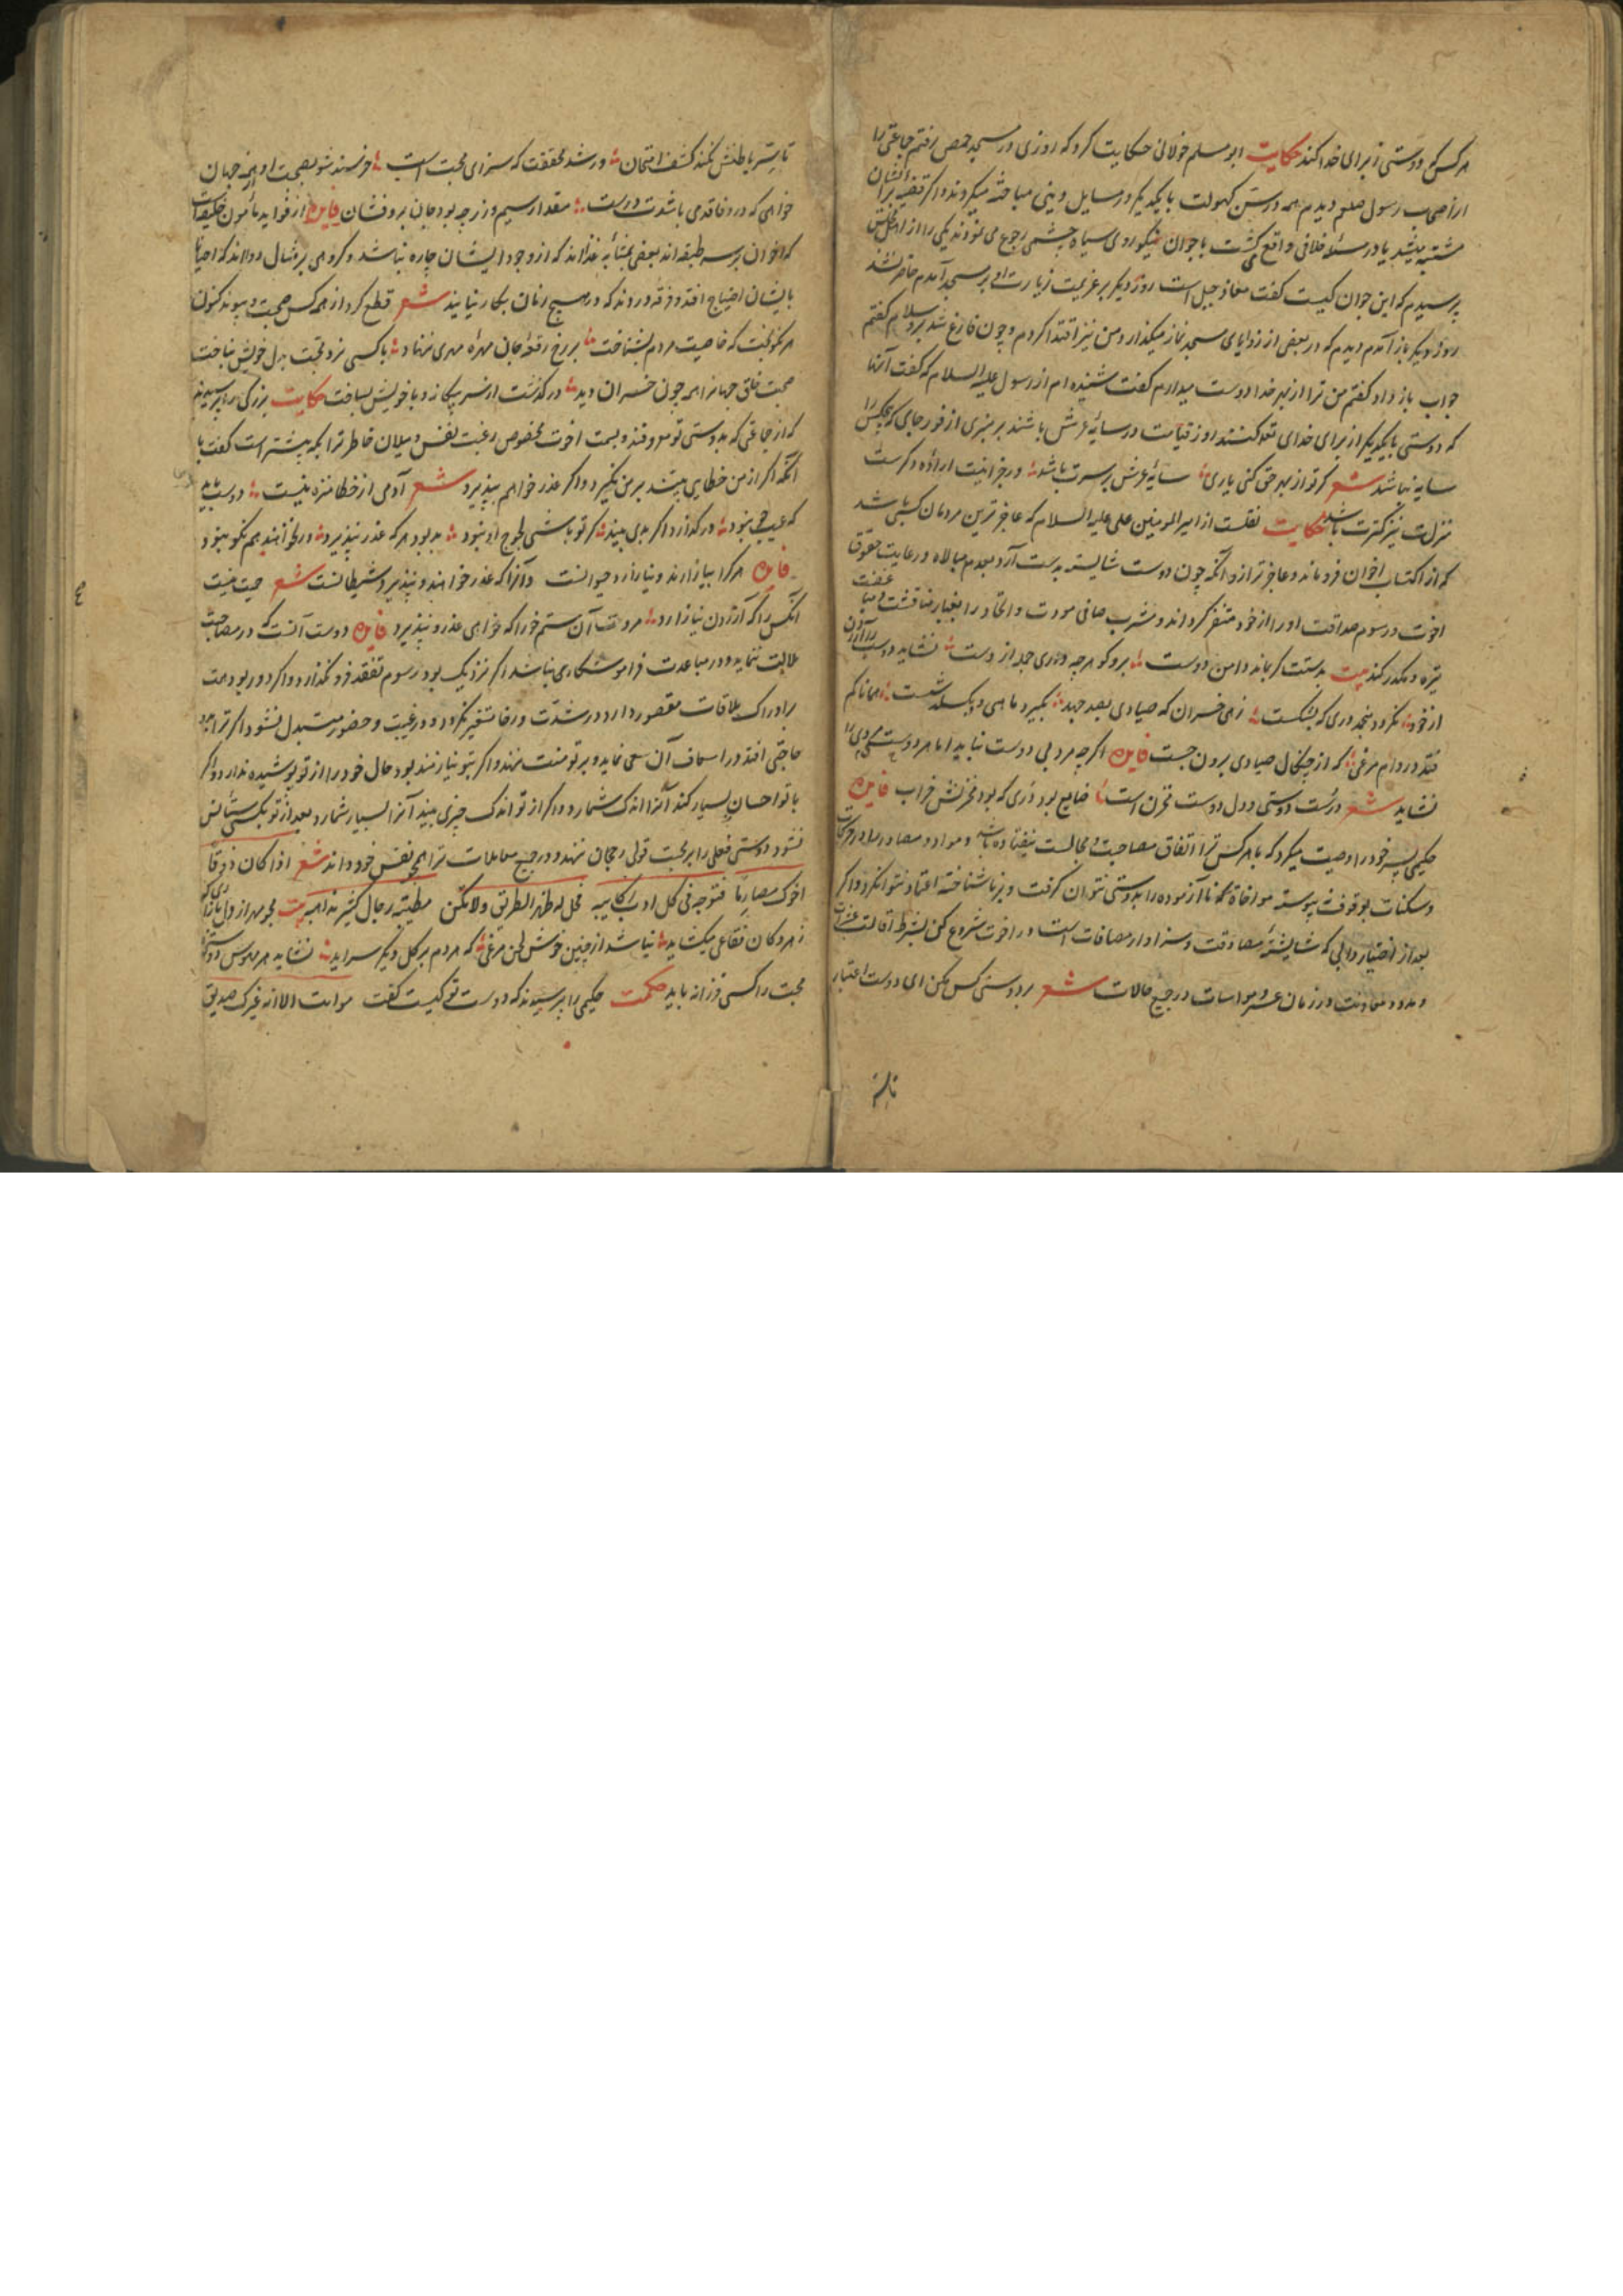 هرکس که دوستی از برای خدا کند حکایت ابو مسلم خولانی حکایت کرد که روزی در مسجد حمص رفتم جماعتی را
از اصحاب رسول صلعم دیدم همه در سن کهولت با یکدیگر در مسایل دینی مباحثه میکردند و اکر قضیه بر ایشان
مشتبه میشد یا در مسئله خلافی واقع میکشت با جوان نیکو روی سیاه چشمی رجوع می نمودند یکی را از اهل مجلس
پرسیدم که این جوان کیست کفت معاذ جبل است روز دیکر بر عزیمت زیارت او بر مسجد آمدم حاضر نشد
روز دیکر باز آمدم دیدم که در بعضی از زوایای مسجد نماز میکذارد من نیز اقتدا کردم و چون فارغ شد بر و سلام کفتم
جواب باز داد کفتم من ترا از بهر خدا دوست میدارم کفت شنیده ام از رسول علیه السلام که کفت آنها
که دوستی با یکدیکر از برای خدای تعه کنند روز قیامت در سایهٔ عرش باشند بر منبری از نور جای که هیچکس را
سایه نباشد شعر کر تو از بهر حق کنی یاری سایهٔ عرش بر سرت باشد
منزلت نیز کثرت باشد حکایت نقلست از امیر المومنین علی علیه السلام که عاجز ترین مردمان کسی باشد
که از اکتساب اخوان فرو ماند و عاجز تر از و آنکه چون دوست شایسته بدست آرد بعدم مبالاه و رعایت حقوق
اخوت و رسوم صداقت او را از خود متنفر کرداند و مشرب صافی مودت و اتحاد را بغبار مناقشت
تیره و مکدر کند بیت بدستت کر بماند دامن دوست برو کو هرچه داری جمله از دست نشاید دوست را آزردن
از خود نکردد بنجد دری که بشکست زهی خسران که صیادی بعد جهد بکیرد ماهی و بکسلد شست همانا کم
فتد در دام مرغی که از چنکال صیادی برون جست فایده اکرچه مرد بی دوست نباید اما هر دوستی را
نشاید شعر درست دوستی و دل دوست مخزن است ضایع بود دری که بود مخزنش خراب فایده
حکیمی پسر خود را وصیت میکرد که با هر کس ترا اتفاق مصاحبت و مجالست نیفتاده باشد و موارد و مصادر او در حرکات
و سکنات بوقوف نپیوسته مواخاة مکن نا آزموده را بدوستی نتوان کرفت و بر ناشناخته اعتماد نتوان کرد و اکر
بعد از اختیار دانی که شایستهٔ مصادقت و سزاوار مصافات است در اخوت شروع کن بشرط اقالت عثرات
و مدد و معاونت در زمان عسر و مواسات در جمیع حالات شعر بر دوستی کس مکن ای دوست اعتبار
تا سر باطنش نکند کشف امتحان ور شد محققت که سزای محبت است خرسند شو بصحبت او از همه جهان
خواهی که در وفا قدمی باشدت درست مقدار سیم و زر چه بود جان برو فشان فایده از فواید مأمون خلیفه است
که اخوان بر سه طبقه اند بعضی بمثابه غذااند که از وجود ایشان چاره نباشد و کروهی بر مثال دوااند که احیانا
بایشان احتیاج افتد و فرقه درد اند که در هیچ زمان بکار نیایند شعر قطع کرد از همه کس صحبت و پیوند کنون
هر نکوبخت که خاصیت مردم بشناخت بر رخ رقعهٔ جان مهرهٔ مهری ننهاد با کسی نرد محبت بدل خویش نباخت
صحبت خلق جهانرا همه چون خسران دید در کذشت از سر بیکانه و با خویش بساخت حکایت بزرکی را پرسیدند
که از جماعتی که بدوستی تو موسومند و بسمت اخوت مخصوص رغبت نفس و میلان خاطر ترا بکه بیشتر است کفت با
آنکه اکر از من خطایی بیند بر من نکیرد و اکر عذر خواهم بپذیرد شعر آدمی از خطا منزه نیست دوست باید
که عیب جو نبود در کذارد اکر بدی بیند کر تو باشی لجوج او نبود بد بود هر که عذر نپذیرد ور نخواهند هم نکو نبود
فایده هر کرا بیازارند و نیازارد حیوانست و آنرا که عذر خواهند و نپذیرد شیطانست شعر حیت نیست
آنکس را که آزردن نیازارد مروت آن ستم خور را که خواهی عذر و نپذیرد فایده دوست آنست که در مصاحبت
ملالت ننماید و در مباعدت فراموشکاری نباشد اکر نزدیک بود رسوم تفقد فرو نکذارد و اکر دور بود همت
بر ادراک ملاقات مقصور دارد در شدت و رخا متغیر نکردد و در غیبت و حضور متبدل نشود اکر ترا بدو
حاجتی افتد در اسعاف آن سعی نماید و بر تو منت ننهد و اکر بتو نیازمند بود حال خود را از تو پوشیده ندارد و اکر
با تو احسان بسیار کند آنرا اندک شمارد و اکر از تو اندک چیزی بیند آنرا بسیار شمارد بعد از تو بکسی ستایش
نشود دوستی فعلی را بر محبت قولی رجحان نهد و در جمیع معاملات ترا همچو نفس خود داند شعر اذا کان ذوقا
اخوک مصارما فتوجه فی کل اوب رکابیه فخل له ظهر الطریق ولا تکن مطیة رجال کثیر مذاهبه بیت مجو مهر از دل بازاریی کو
ز هر دکان فقاعی میکشاید نباشد از چنین خوش لحن مرغی که هر دم بر کل دیکر سراید نشاید هر مهوس دوستی را
محبت را کسی فرزانه باید حکمت حکیمی را پرسیدند که دوست تو کیست کفت هو انت الا انه غیرک صدیق